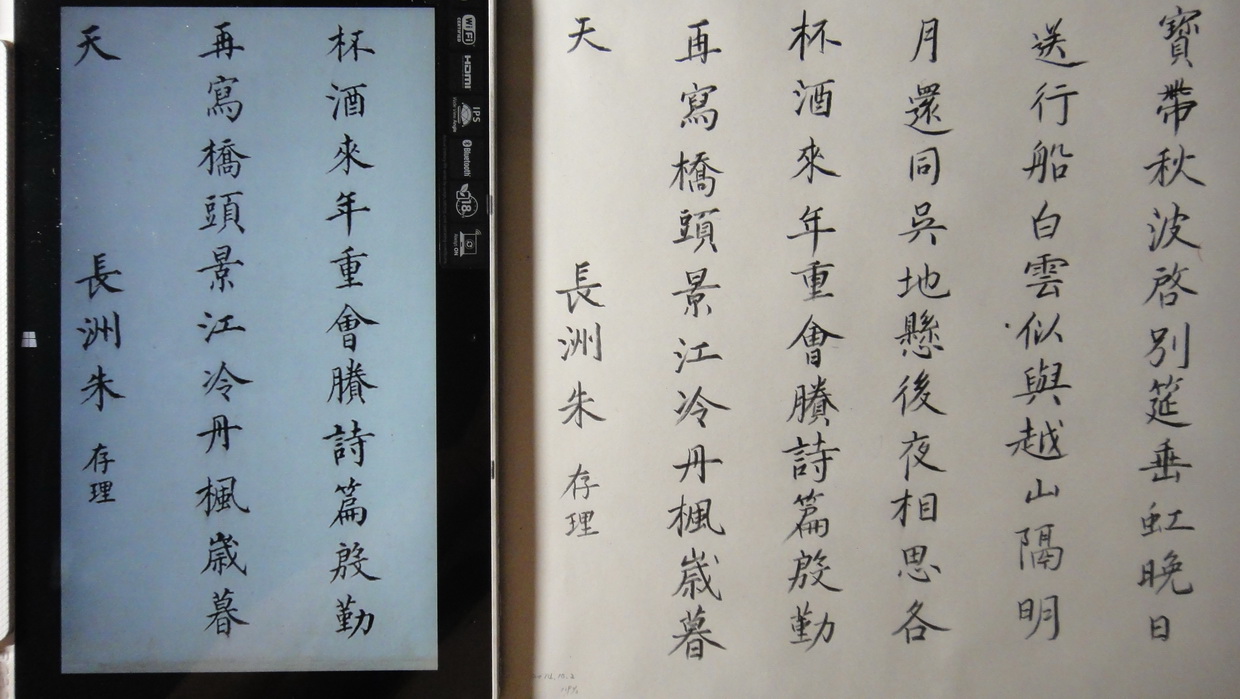 寶帶秋波啓別筵垂虹晚日
送行船白雲似與越山隔明
月還同吳地懸後夜相思各
杯酒來年重會賸詩篇殷勤
再寫橋頭景江冷丹楓歲暮
天 長洲朱存理
杯酒來年重會賸詩篇殷勤
再寫橋頭景江冷丹楓歲暮
天 長洲朱存理
WiFi CERTIFIED
HDMI
IPS
Bluetooth